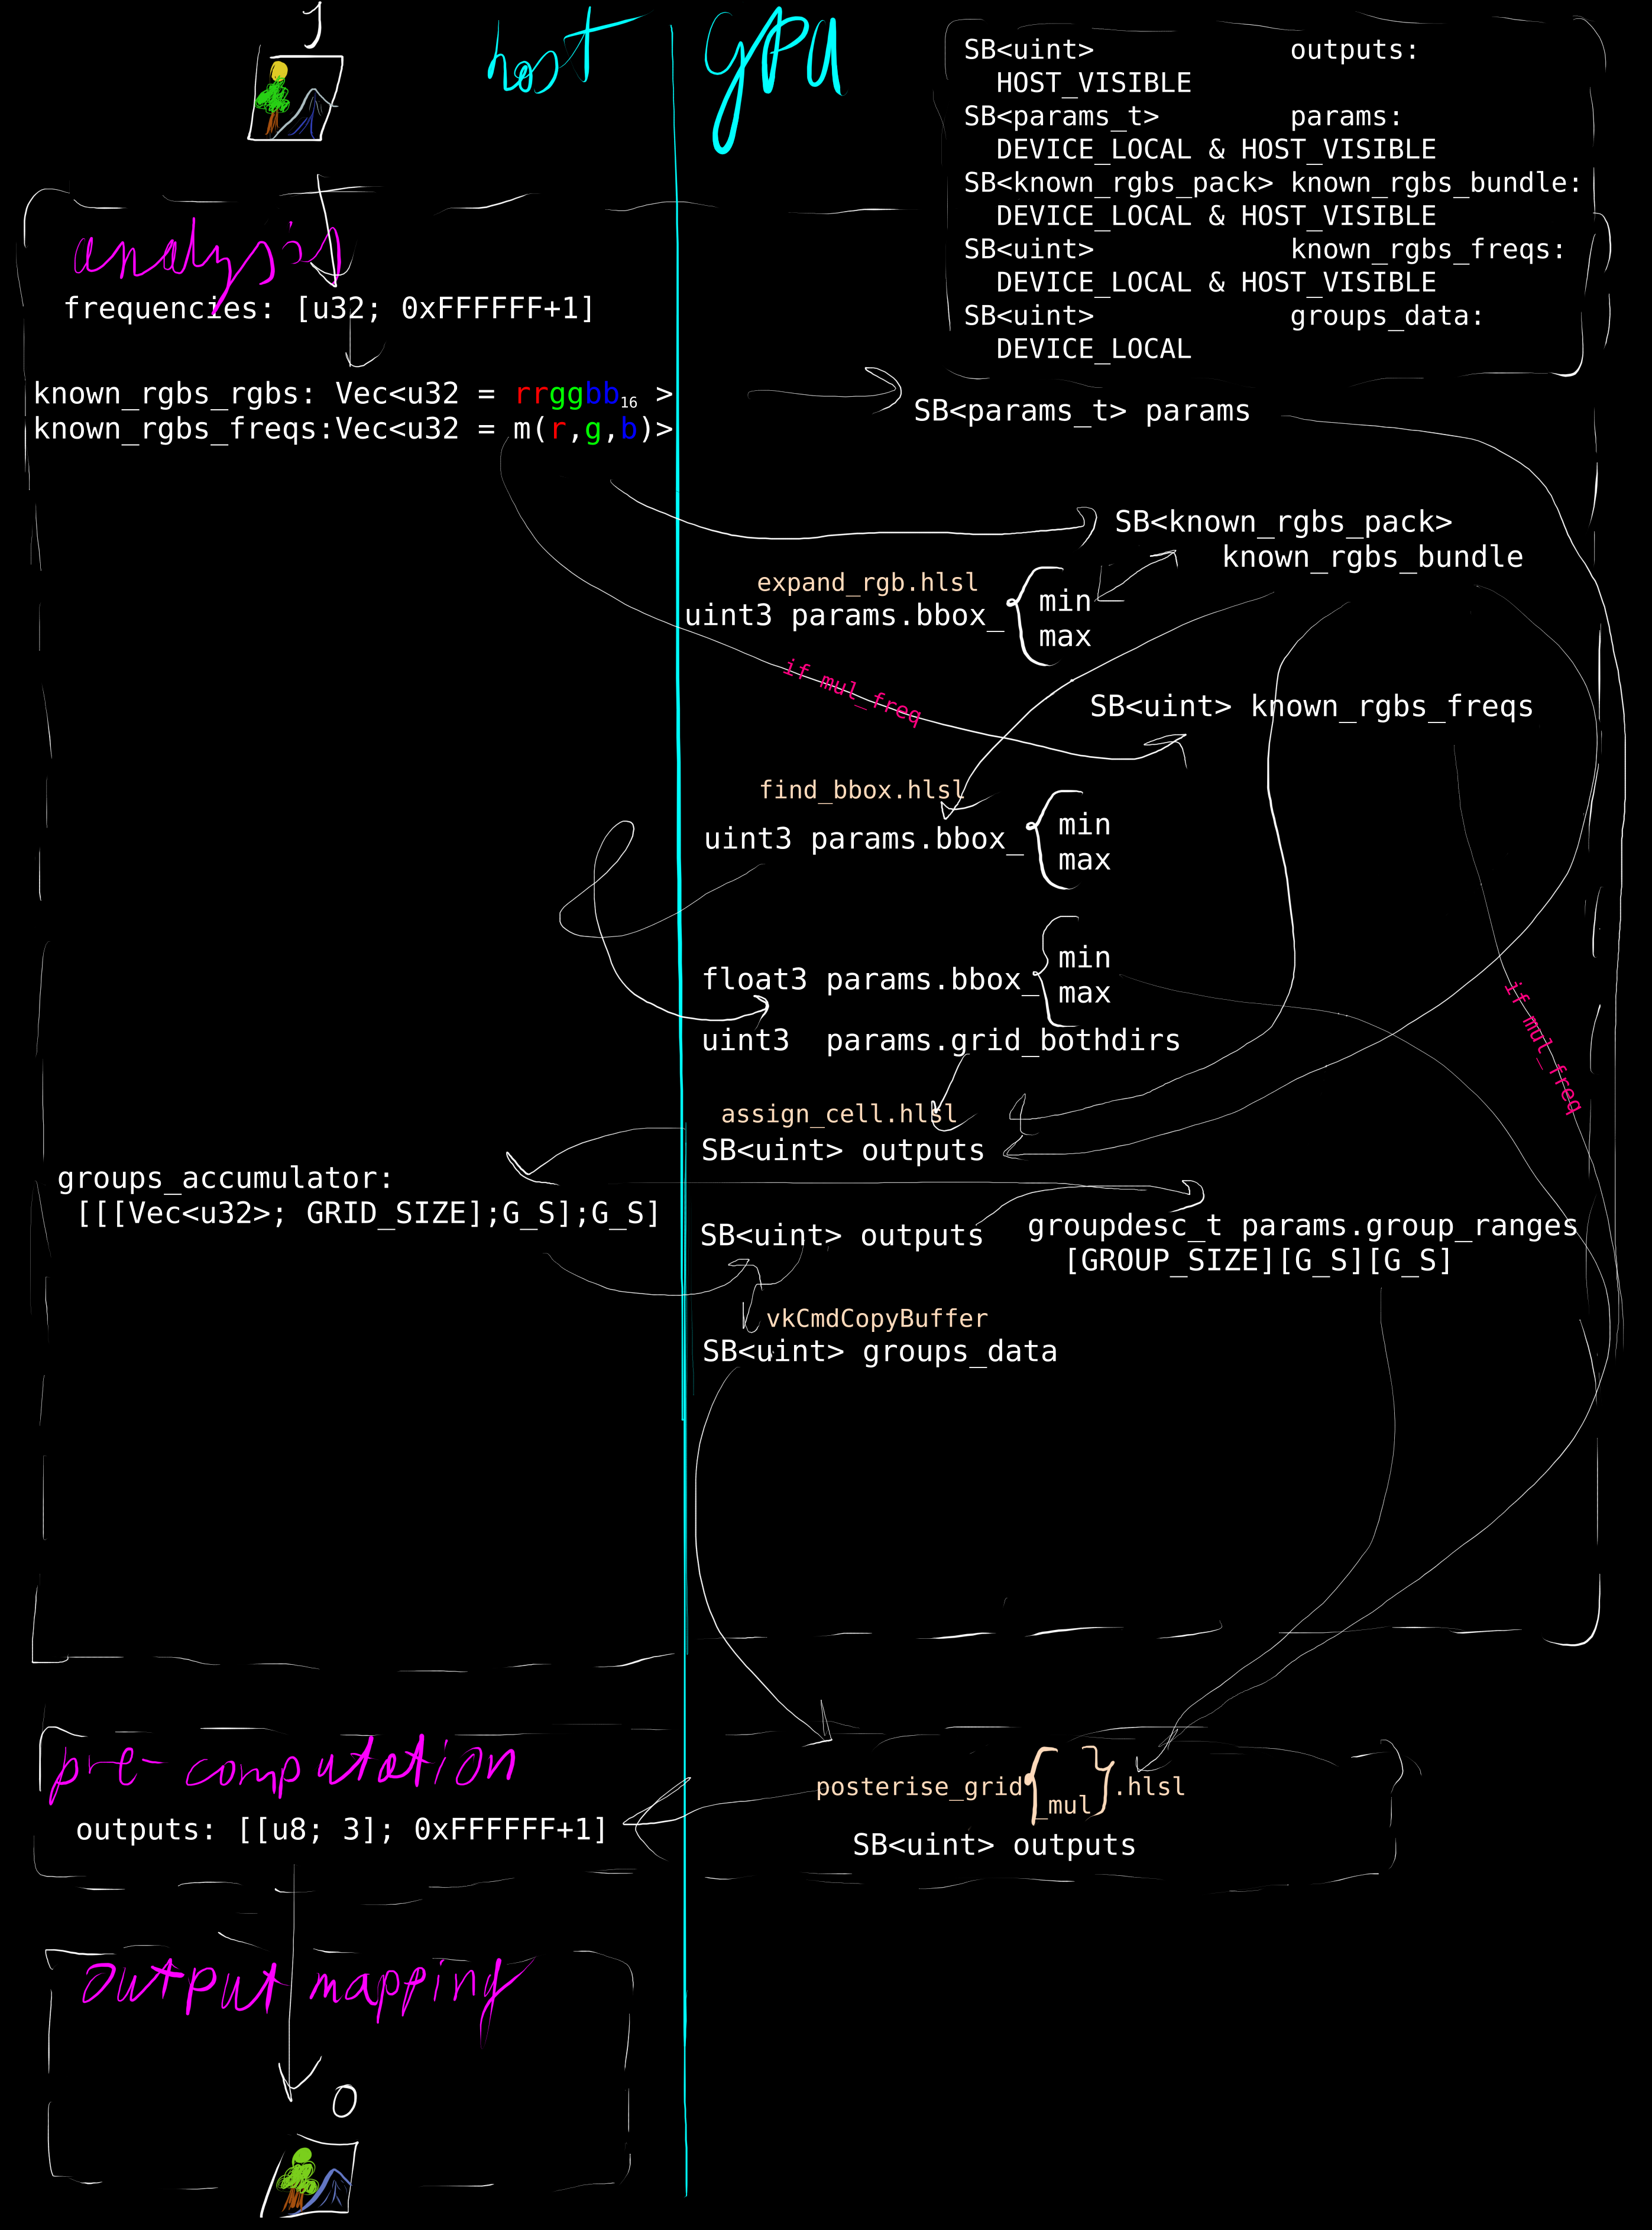 J
host
gpu
SB<uint> outputs:
HOST_VISIBLE
SB<params_t> params:
DEVICE_LOCAL & HOST_VISIBLE
SB<known_rgbs_pack> known_rgbs_bundle:
DEVICE_LOCAL & HOST_VISIBLE
SB<uint> known_rgbs_freqs:
DEVICE_LOCAL & HOST_VISIBLE
SB<uint> groups_data:
DEVICE_LOCAL
analysis
frequencies: [u32; 0xFFFFFF+1]
known_rgbs_rgbs: Vec<u32 = rrggbb₁₆ >
known_rgbs_freqs:Vec<u32 = m(r,g,b)>
SB<params_t> params
SB<known_rgbs_pack>
known_rgbs_bundle
expand_rgb.hlsl
uint3 params.bbox_{
min
max
if mul_freq
SB<uint> known_rgbs_freqs
find_bbox.hlsl
uint3 params.bbox_{
min
max
float3 params.bbox_{
min
max
uint3 params.grid_bothdirs
if mul_freq
assign_cell.hlsl
SB<uint> outputs
groups_accumulator:
[[[Vec<u32>; GRID_SIZE];G_S];G_S]
SB<uint> outputs
groupdesc_t params.group_ranges
[GROUP_SIZE][G_S][G_S]
vkCmdCopyBuffer
SB<uint> groups_data
pre-computation
posterise_grid{_mul}.hlsl
outputs: [[u8; 3]; 0xFFFFFF+1]
SB<uint> outputs
output mapping
O